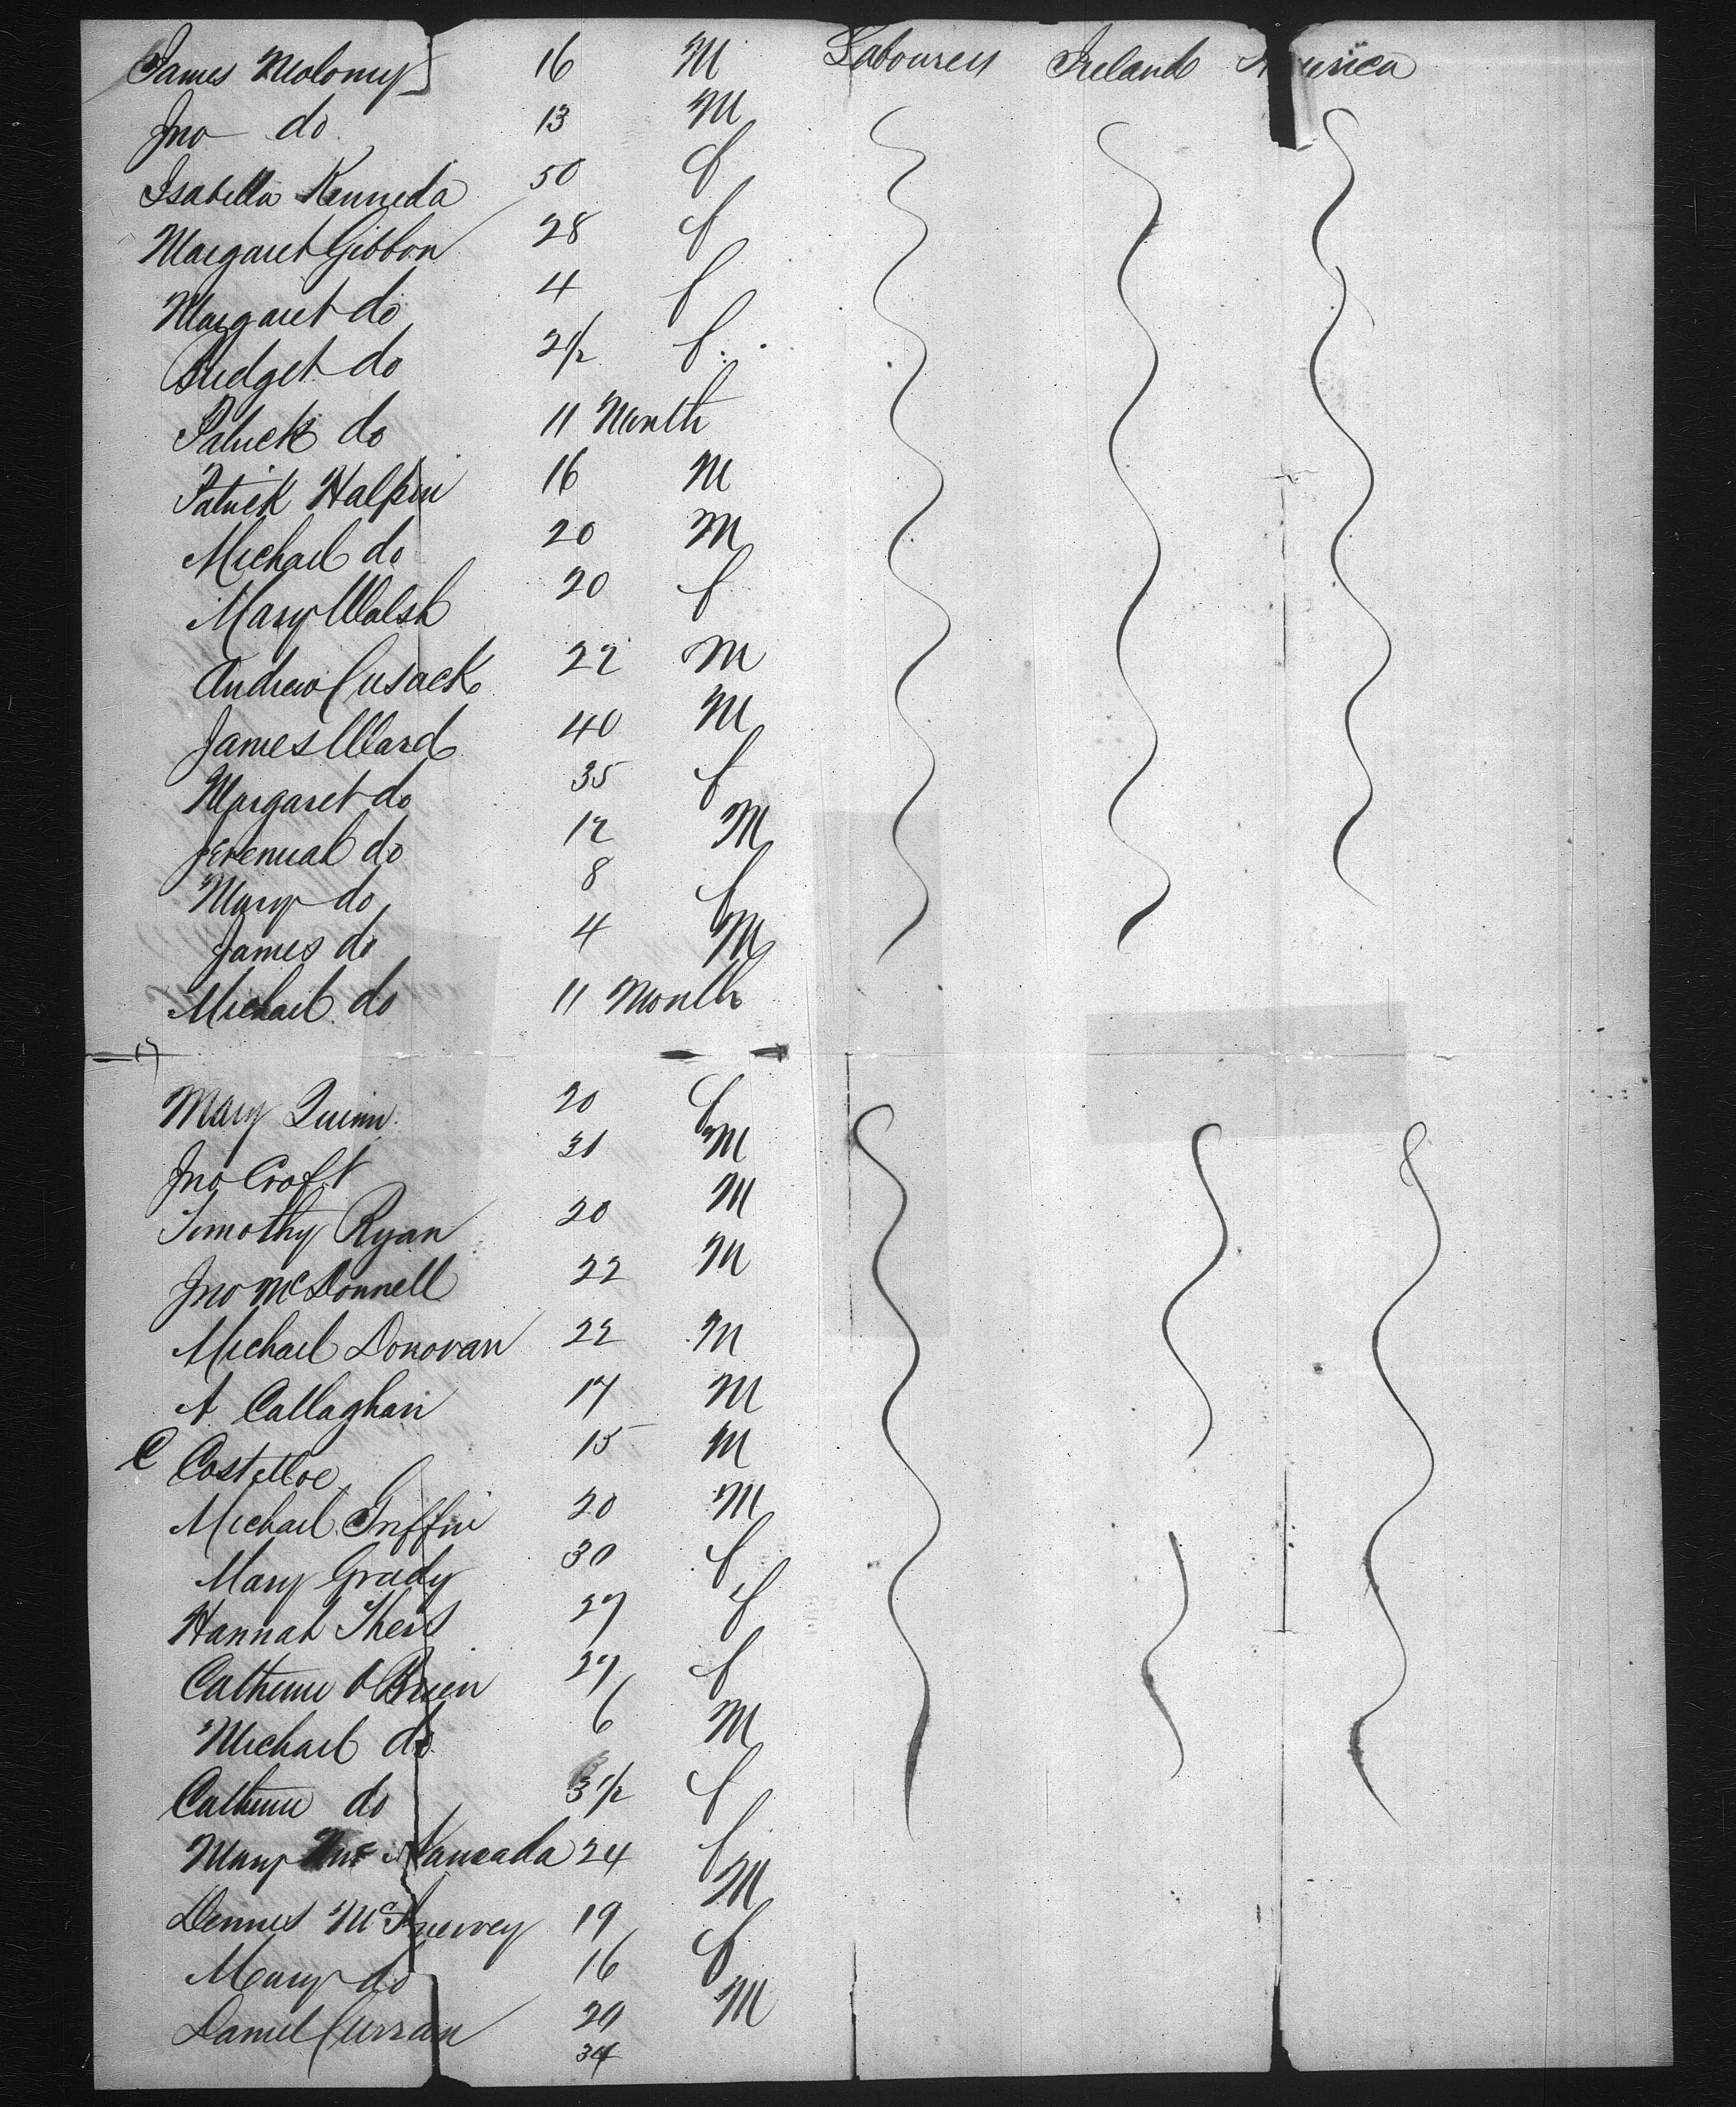 James Molomy 16 M Labourers Ireland America
Jno do 13 M
Isabella Kenneda 50 f
Margaret Gibbon 28 f
Margaret do 4 f
Bridget do 2 1/2 f
Patrick do 11 Month
Patrick Halpin 16 M
Michael do 20 M
Mary Walsh 20 f
Andrew Cusack 22 M
James Ward 40 M
Margaret do 35 f
Jeremiah do 12 M
Mary do 8 f
James do 4 M
Michael do 11 Months
Mary Quinn 20 f
Jno Croft 31 M
Timothy Ryan 20 M
Jno McDonnell 22 M
Michael Donovan 22 M
A Callaghan 17 M
C Costelloe 15 M
Michael Griffin 20 M
Mary Grady 30 f
Hannah 27 f
Catherine O Brien 27 f
Michael do 6 M
Catherine do 3 1/2 f
Mary 24 f
Dennis 19 M
Mary do 16 f
Daniel Curran 20 M
34